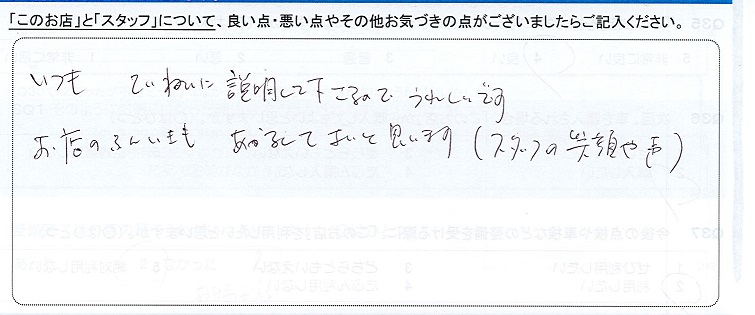 「このお店」と「スタッフ」について、良い点・悪い点やその他お気づきの点がございましたらご記入ください。
いつも ていねいに 説明して下さるので うれしいです
お店のふんいきも あかるくて よいと思います (スタッフの笑顔や声)